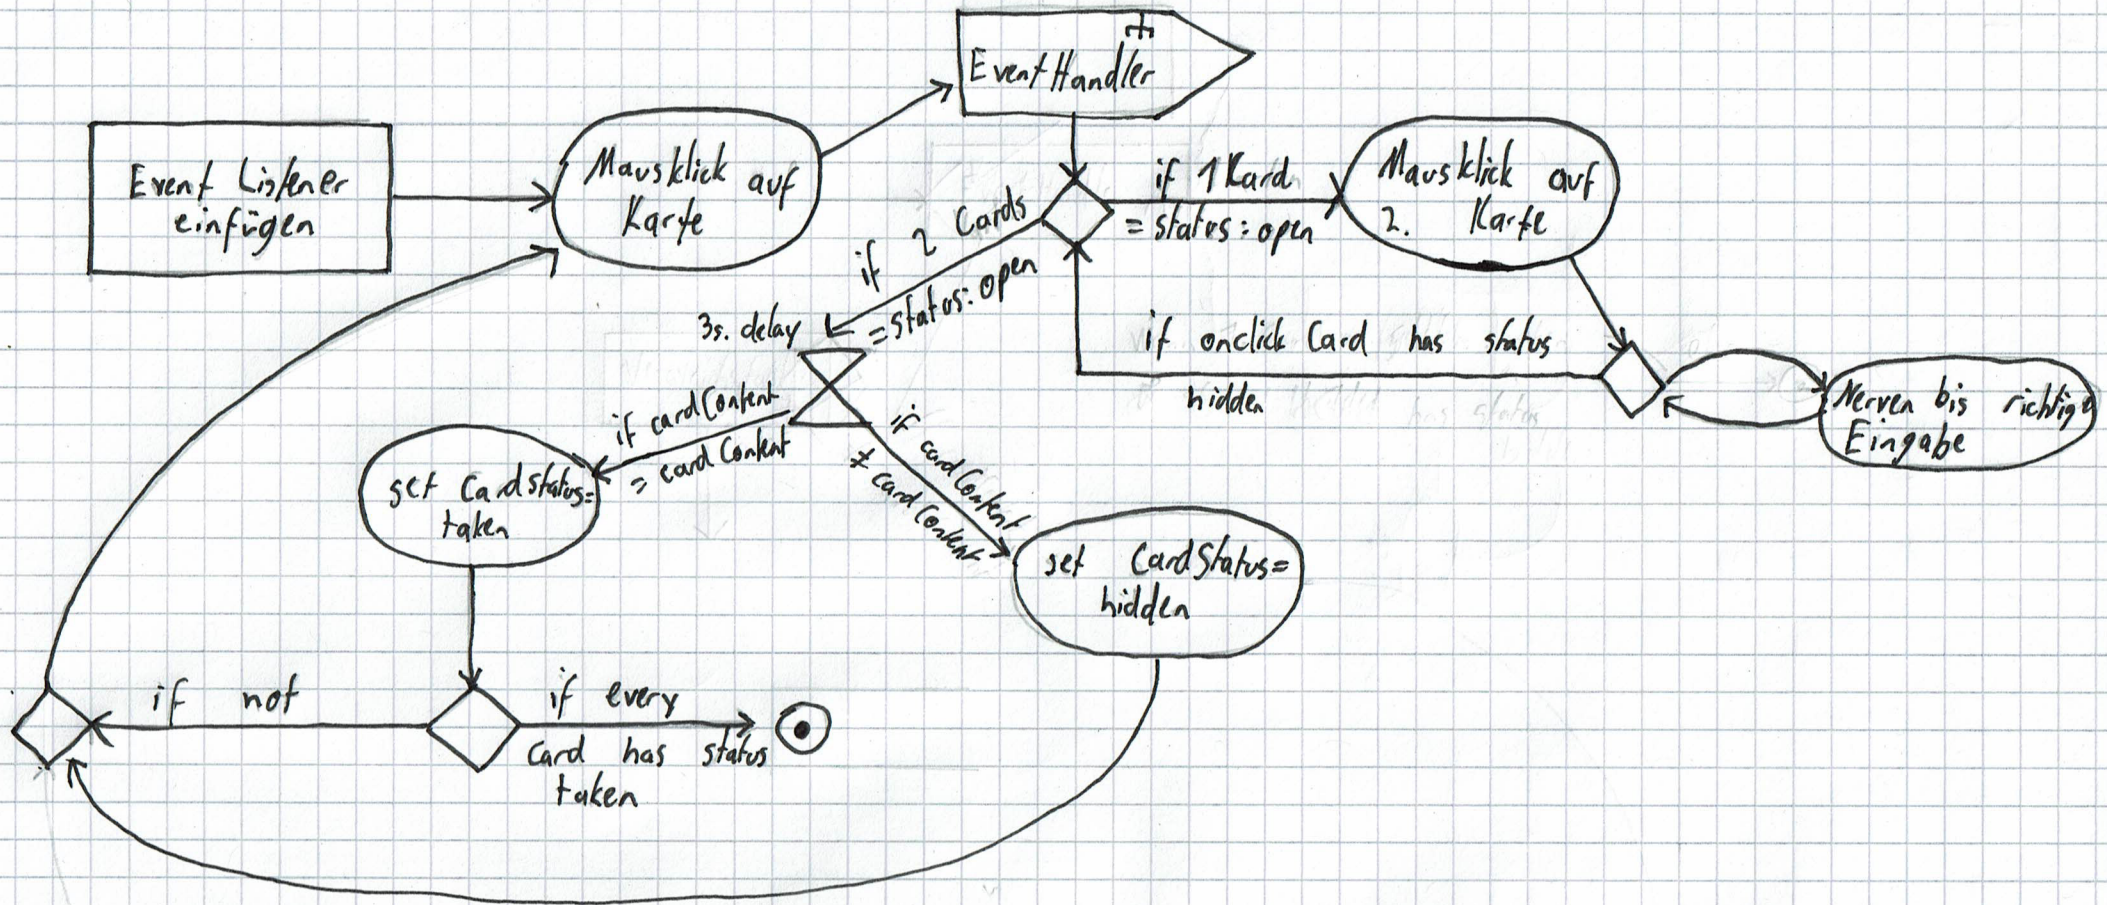 Event Handler
Event Listener
einfügen
Mausklick auf
Karte
if 1 Kard
= status: open
Mausklick auf
2. Karte
if 2 Cards
= status: open
3s. delay
if onclick Card has status
hidden
Nerven bis richtige
Eingabe
if cardContent
= cardContent
if cardContent
≠ cardContent
set Cardstatus=
taken
set CardStatus=
hidden
if not
if every
Card has status
taken